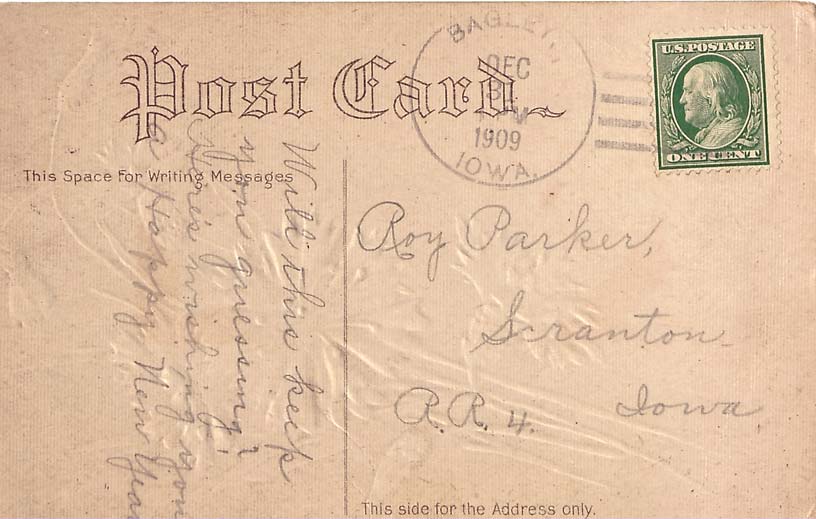 Post Card
BAGLEY,
DEC
1909
IOWA.
U.S. POSTAGE
ONE CENT
This Space For Writing Messages
Will this keep
you guessing?
Here's wishing you
a Happy New Year
Roy Parker,
Scranton
R.R. 4. Iowa
This side for the Address only.